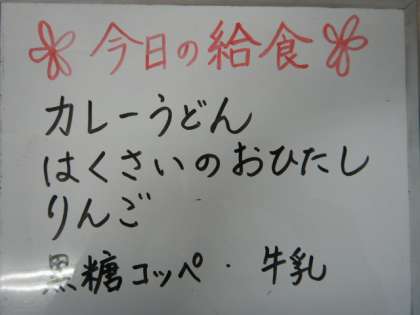 今日の給食
カレーうどん
はくさいのおひたし
りんご
黒糖コッペ・牛乳